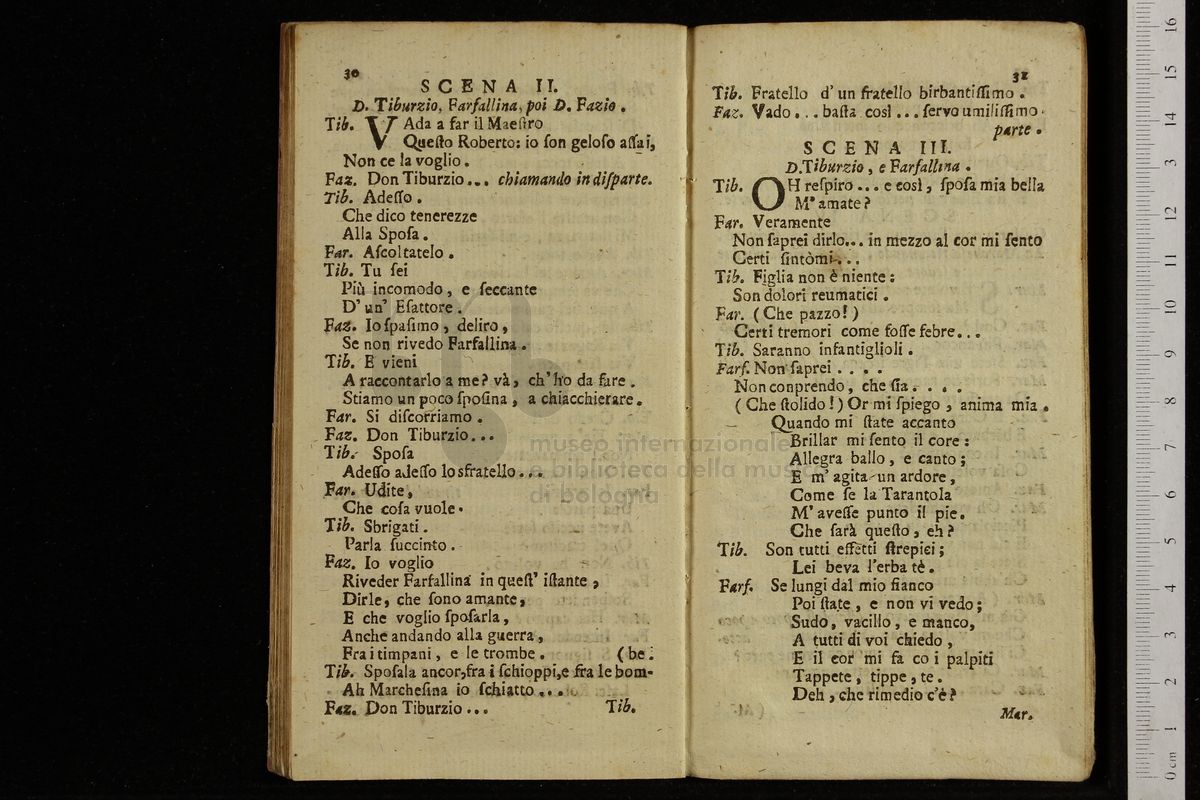 30
SCENA II.
D. Tiburzio, Farfallina, poi D. Fazio.
Tib. VAda a far il Maeſtro
Queſto Roberto: io ſon geloſo aſſai,
Non ce la voglio.
Faz. Don Tiburzio... chiamando in diſparte.
Tib. Adeſſo.
Che dico tenerezze
Alla Spoſa.
Far. Aſcoltatelo.
Tib. Tu ſei
Più incomodo, e ſeccante
D'un' Eſattore.
Faz. Io ſpaſimo, deliro,
Se non rivedo Farfallina.
Tib. E vieni
A raccontarlo a me? và, ch'ho da fare.
Stiamo un poco ſpoſina, a chiacchierare.
Far. Si diſcorriamo.
Faz. Don Tiburzio...
Tib. Spoſa
Adeſſo adeſſo lo sfratello...
Far. Udite,
Che coſa vuole.
Tib. Sbrigati.
Parla ſuccinto.
Faz. Io voglio
Riveder Farfallina in queſt' iſtante,
Dirle, che ſono amante,
E che voglio ſpoſarla,
Anche andando alla guerra,
Fra i timpani, e le trombe. (be.
Tib. Spoſala ancor,fra i ſchioppi,e fra le bom-
Ah Marcheſina io ſchiatto...
Faz. Don Tiburzio...
Tib.
31
Tib. Fratello d'un fratello birbantiſſimo.
Faz. Vado... baſta così... ſervo umiliſſimo.
parte.
SCENA III.
D.Tiburzio, e Farfallina.
Tib. OH reſpiro... e così, ſpoſa mia bella
M'amate?
Far. Veramente
Non ſaprei dirlo... in mezzo al cor mi ſento
Certi ſintòmi...
Tib. Figlia non è niente:
Son dolori reumatici.
Far. (Che pazzo!)
Certi tremori come foſſe febre...
Tib. Saranno infantiglioli.
Farf. Non ſaprei....
Non conprendo, che ſia....
(Che ſtolido!) Or mi ſpiego, anima mia.
Quando mi ſtate accanto
Brillar mi ſento il core:
Allegra ballo, e canto;
E m'agita un ardore,
Come ſe la Tarantola
M'aveſſe punto il pie.
Che ſarà queſto, eh?
Tib. Son tutti effetti ſtrepici;
Lei beva l'erba tè.
Farf. Se lungi dal mio fianco
Poi ſtate, e non vi vedo;
Sudo, vacillo, e manco,
A tutti di voi chiedo,
E il cor mi fa co i palpiti
Tappete, tippe, te.
Deh, che rimedio c'è?
Mar.
museo internazionale
e biblioteca della musica
di bologna
0 cm 1 2 3 4 5 6 7 8 9 10 11 12 13 14 15 16